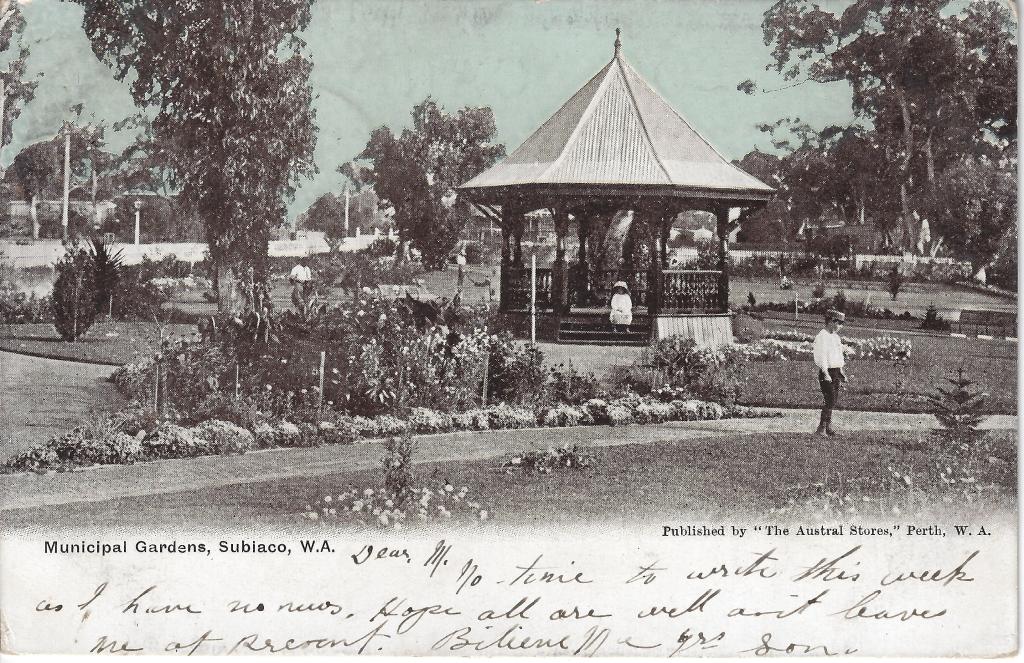 Published by "The Austral Stores," Perth, W. A.
Municipal Gardens, Subiaco, W.A.
Dear M.
No time to write this week
as I have no news. Hope all are well as it leaves
me at present. Believe Me yrs Son.